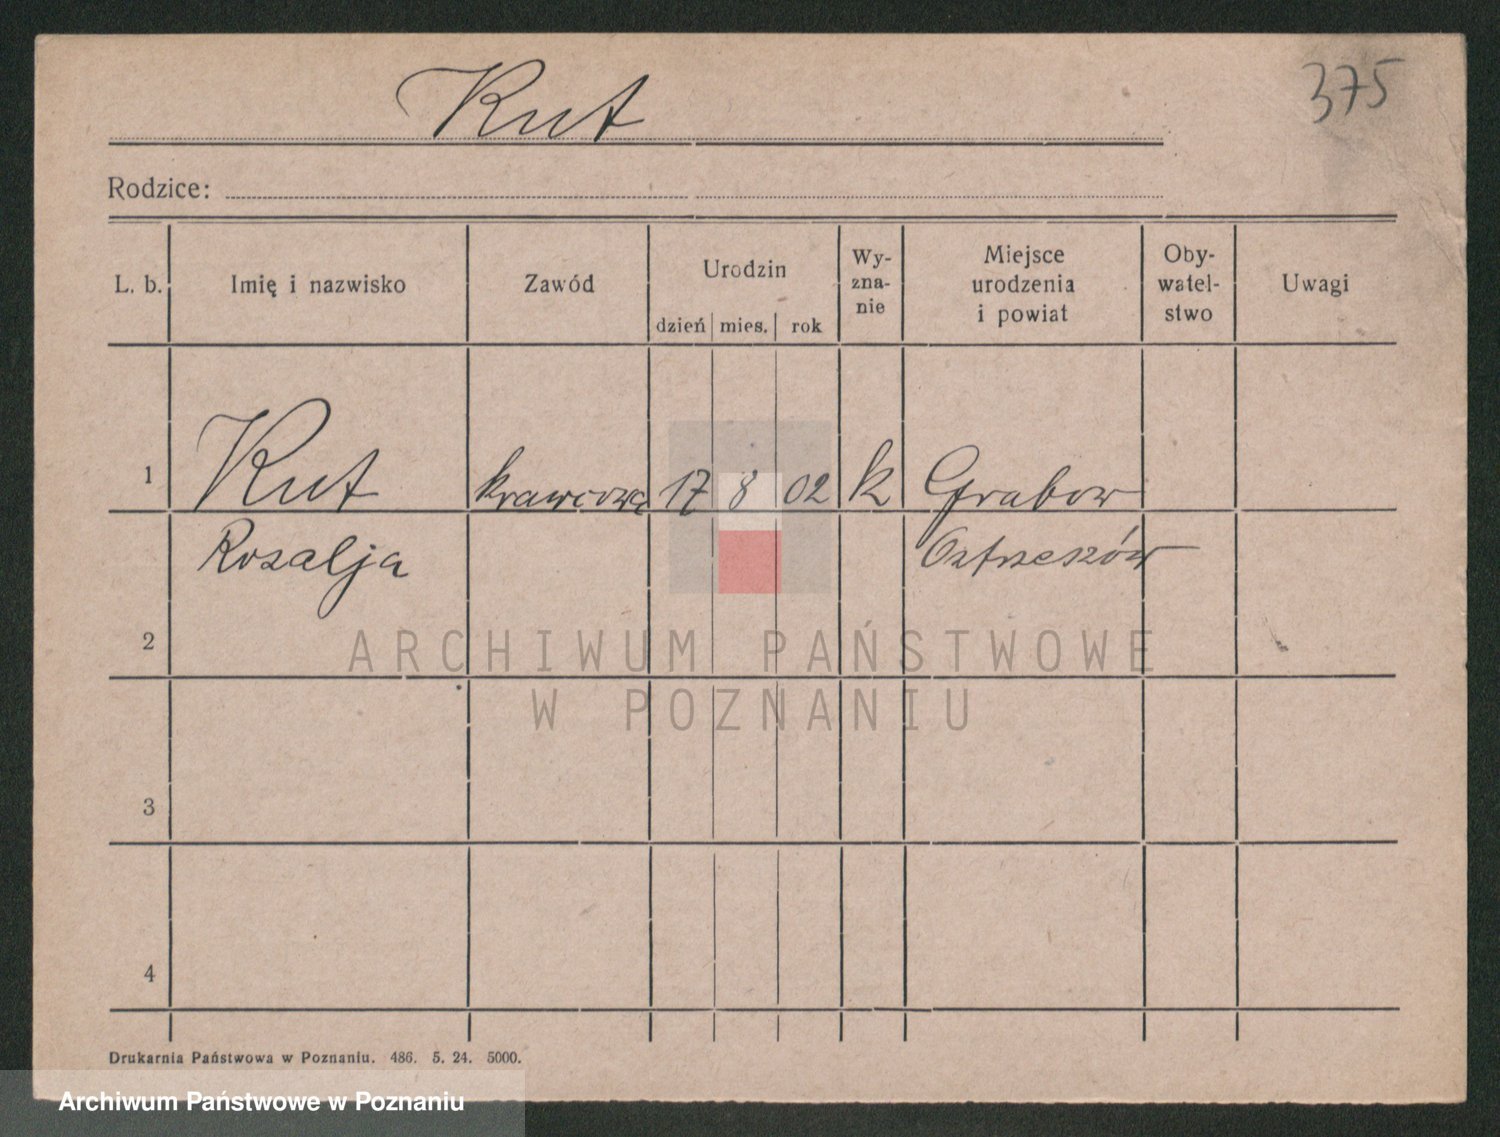 375
Kut
Rodzice:
L. b. Imię i nazwisko Zawód Urodzin dzień mies. rok Wy-zna-nie Miejsce urodzenia i powiat Oby-watel-stwo Uwagi
1 Kut krawcowa 17 8 02 k Grabow
Rozalja Ostrzeszów
2
3
4
Drukarnia Państwowa w Poznaniu. 486. 5. 24. 5000.
ARCHIWUM PAŃSTWOWE
W POZNANIU
Archiwum Państwowe w Poznaniu